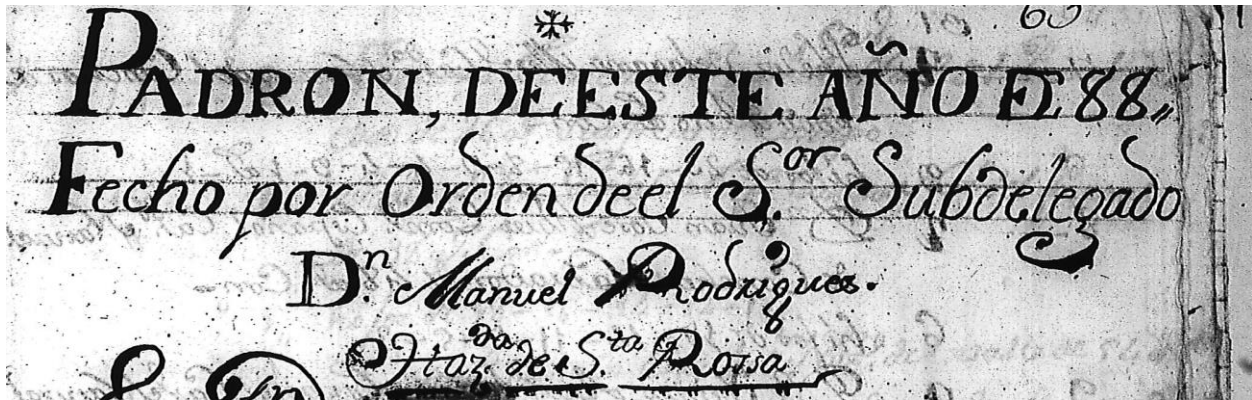 63
PADRON, DE ESTE AÑO DE 88,,
Fecho por Orden de el S.or Subdelegado
D.n Manuel Rodrigues.
Haz.da de S.ta Rossa